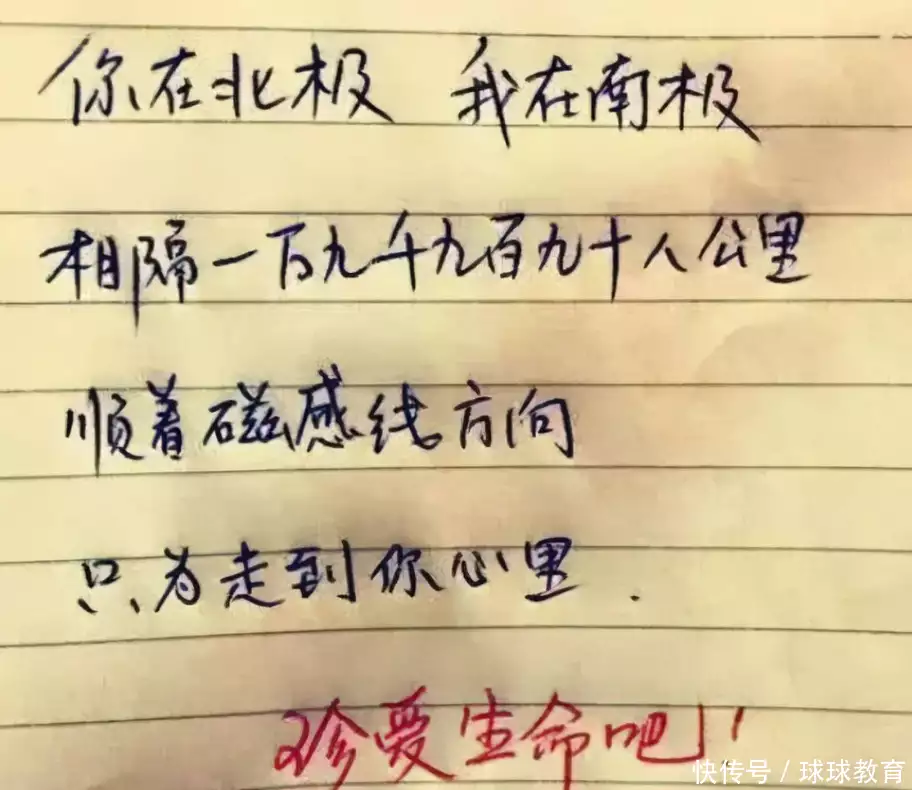 你在北极 我在南极
相隔一万九千九百九十八公里
顺着磁感线方向
只为走到你心里.
珍爱生命吧!
快传号/球球教育